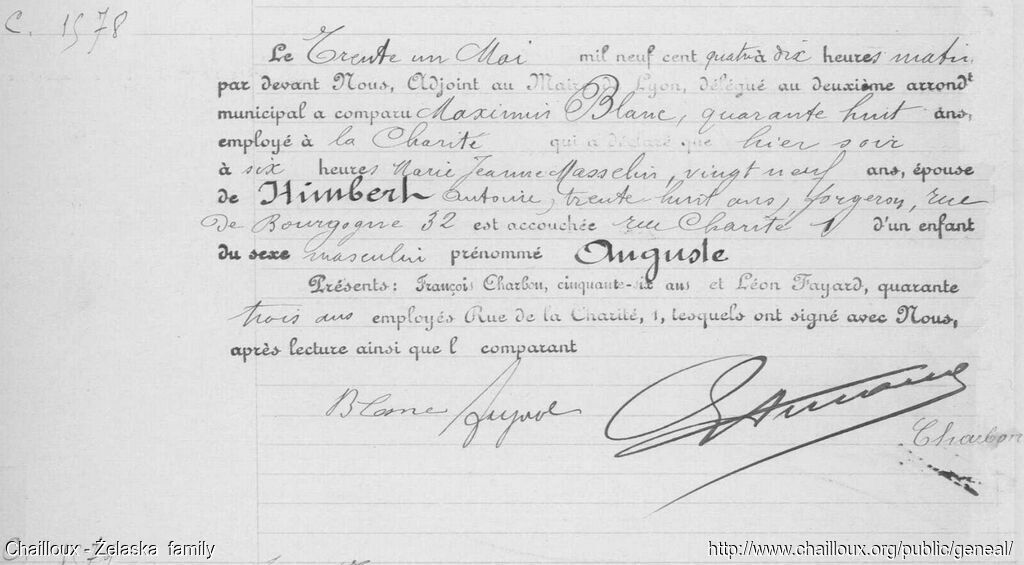 C. 1578
Le Trente un Mai mil neuf cent quatre à dix heures matin
par devant Nous, Adjoint au Maire de Lyon, délégué au deuxième arrondt
municipal a comparu Maximin Blanc, quarante huit ans,
employé à la Charité qui a déclaré que hier soir
à six heures Marie Jeanne Masselin, vingt neuf ans, épouse
de Humbert Antoine, trente huit ans, forgeron, rue
de Bourgogne 32 est accouchée rue Charité 1 d'un enfant
du sexe masculin prénommé Auguste
Présents: François Charbon, cinquante-six ans et Léon Fayard, quarante
trois ans employés Rue de la Charité, 1, lesquels ont signé avec Nous,
après lecture ainsi que l comparant
Blanc Fayard
Charbon
Chailloux - Želaska family
http://www.chailloux.org/public/geneal/